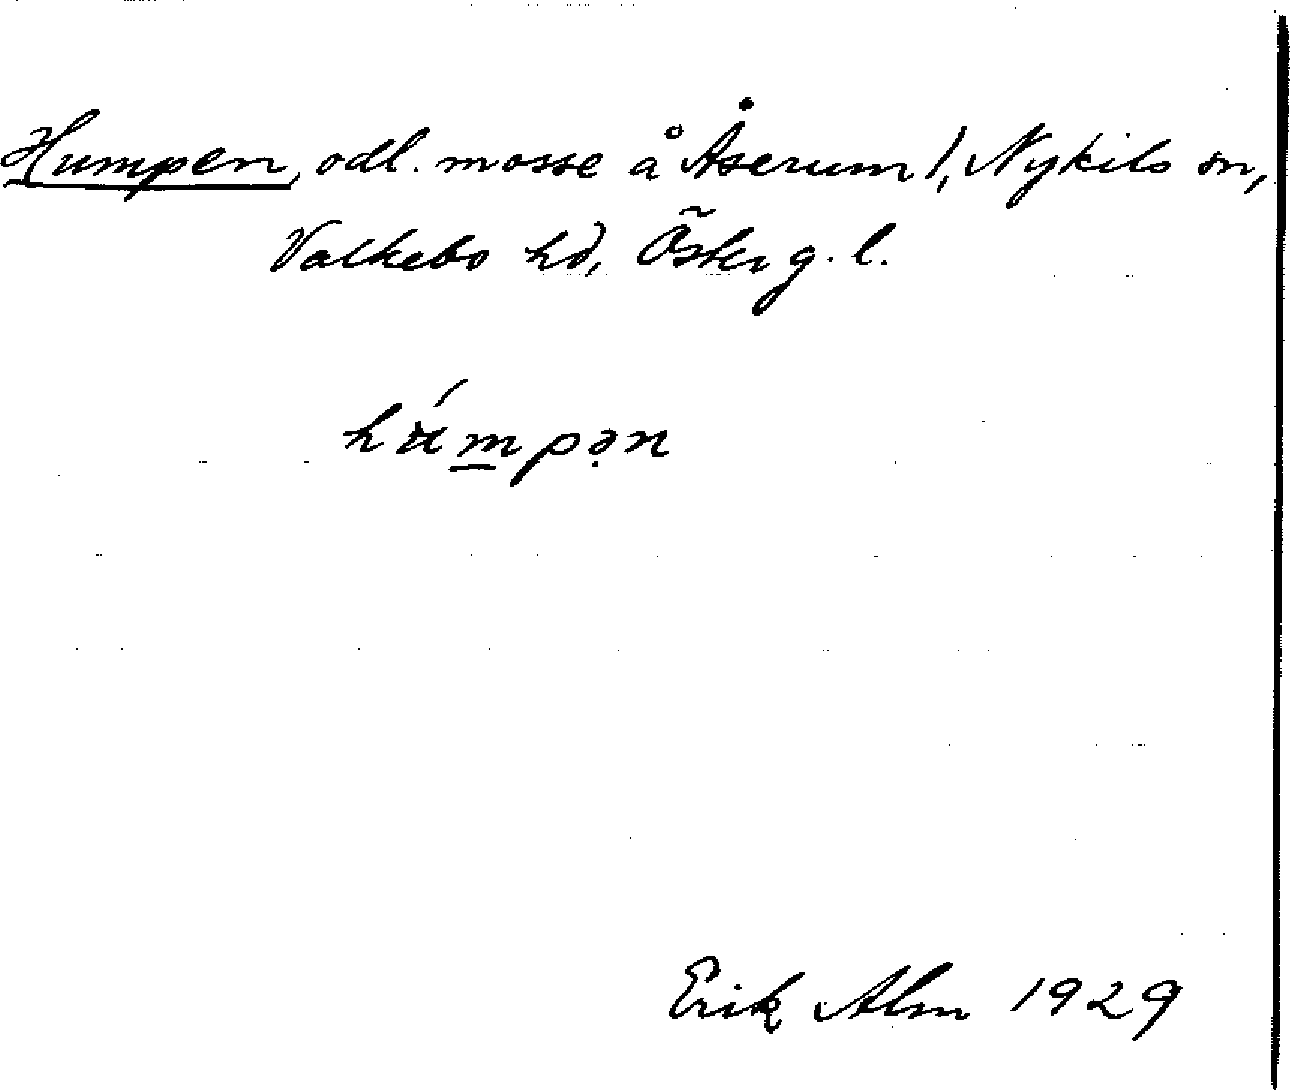 Humpen, odl. mosse å Åserum /, Nykils sn,
Valkebo hd, Österg. l.
húmpən
Erik Alm 1929